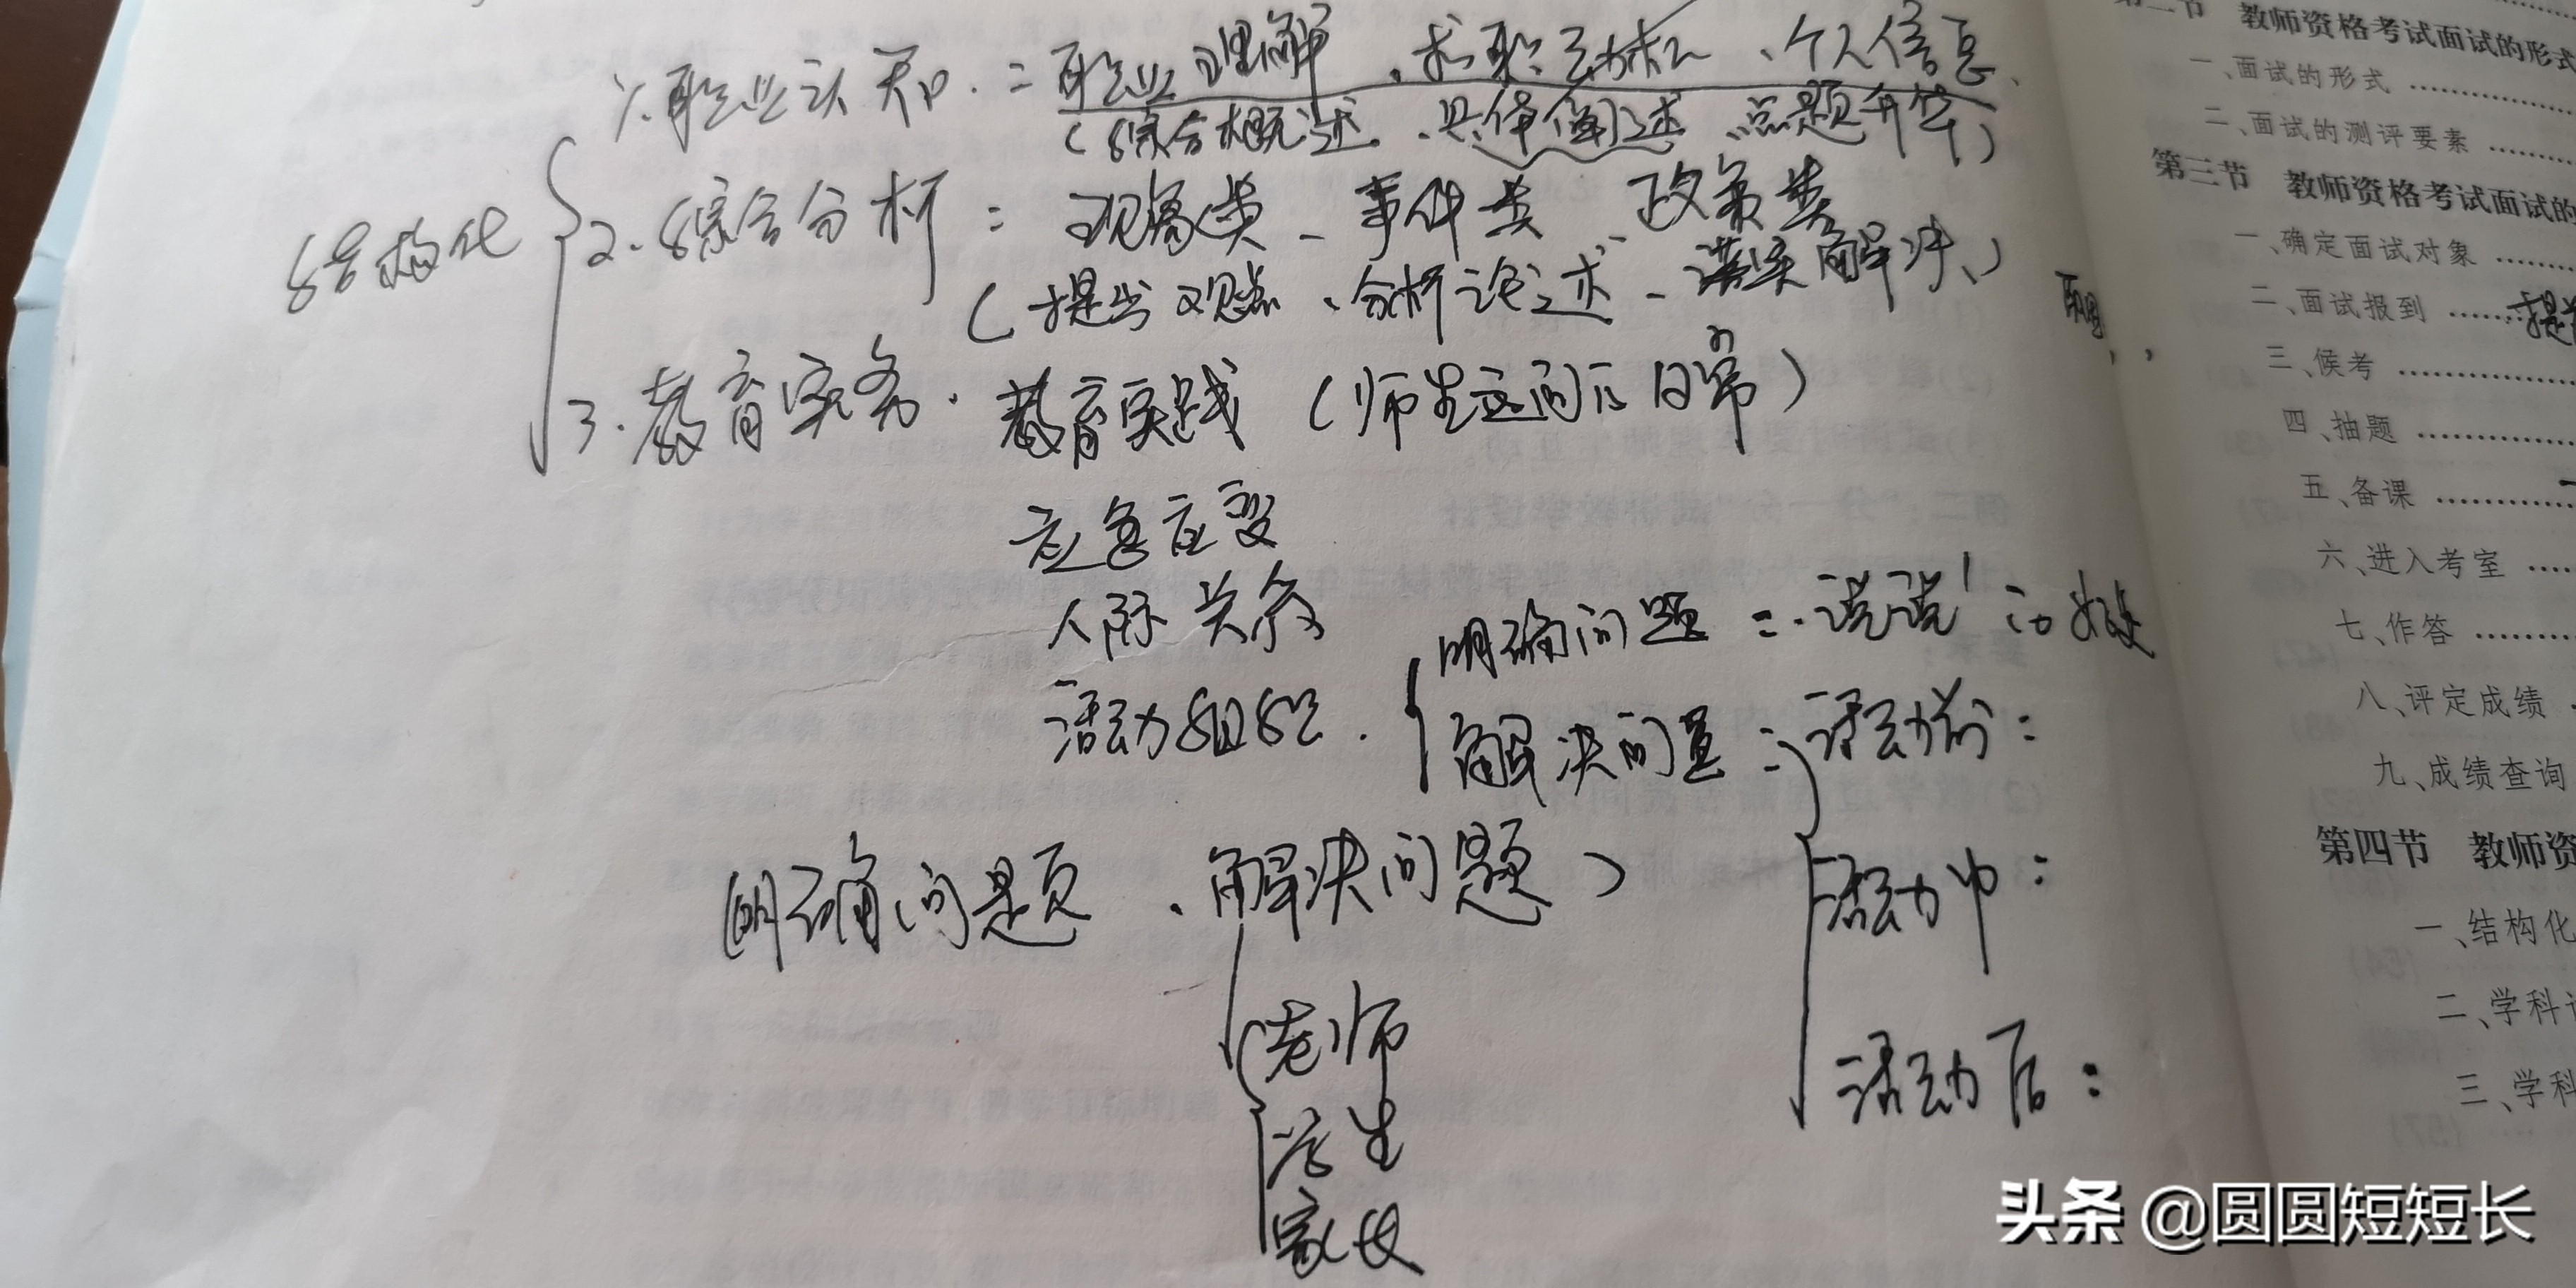 1.职业认知.：职业理解、求职动机、个人信息、
(综合概述、具体阐述、点题升华)
结构化
2.综合分析：现象类、事件类、政策类
(提出观点、分析论述、落实解决、)
3.教育实务.教育实践(师生之间的日常)
应急应变
人际关系
活动组织.
明确问题：说说活动
解决问题：活动前：
活动中：
活动后：
(明确问题、解决问题)
老师
学生
家长
第二节 教师资格考试面试的形式
一、面试的形式
二、面试的测评要素
第三节 教师资格考试面试的
一、确定面试对象
二、面试报到
三、候考
四、抽题
五、备课
六、进入考室
七、作答
八、评定成绩
九、成绩查询
第四节 教师资
一、结构化
二、学科
三、学科
头条 @圆圆短短长